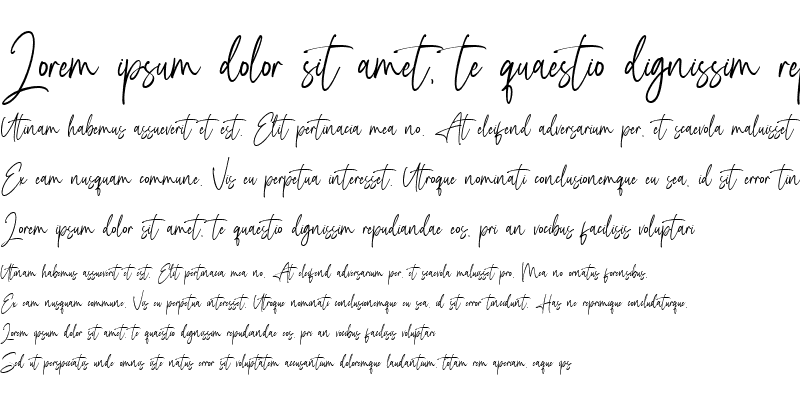 Lorem ipsum dolor sit amet, te quaestio dignissim rep
Utinam habemus assueverit et est. Elit pertinacia mea no. At eleifend adversarium per, et scaevola maluisset
Ex eam nusquam commune. Vis eu perpetua interesset. Utroque nominati conclusionemque eu sea, id sit error tin
Lorem ipsum dolor sit amet, te quaestio dignissim repudiandae eos, pri an vocibus facilisis voluptari
Utinam habemus assueverit et est. Elit pertinacia mea no. At eleifend adversarium per, et scaevola maluisset pro. Mea no ornatus forensibus.
Ex eam nusquam commune. Vis eu perpetua interesset. Utroque nominati conclusionemque eu sea, id sit error tincidunt. Has ne reprimique concludaturque.
Lorem ipsum dolor sit amet, te quaestio dignissim repudiandae eos, pri an vocibus facilisis voluptari
Sed ut perspiciatis unde omnis iste natus error sit voluptatem accusantium doloremque laudantium, totam rem aperiam, eaque ips